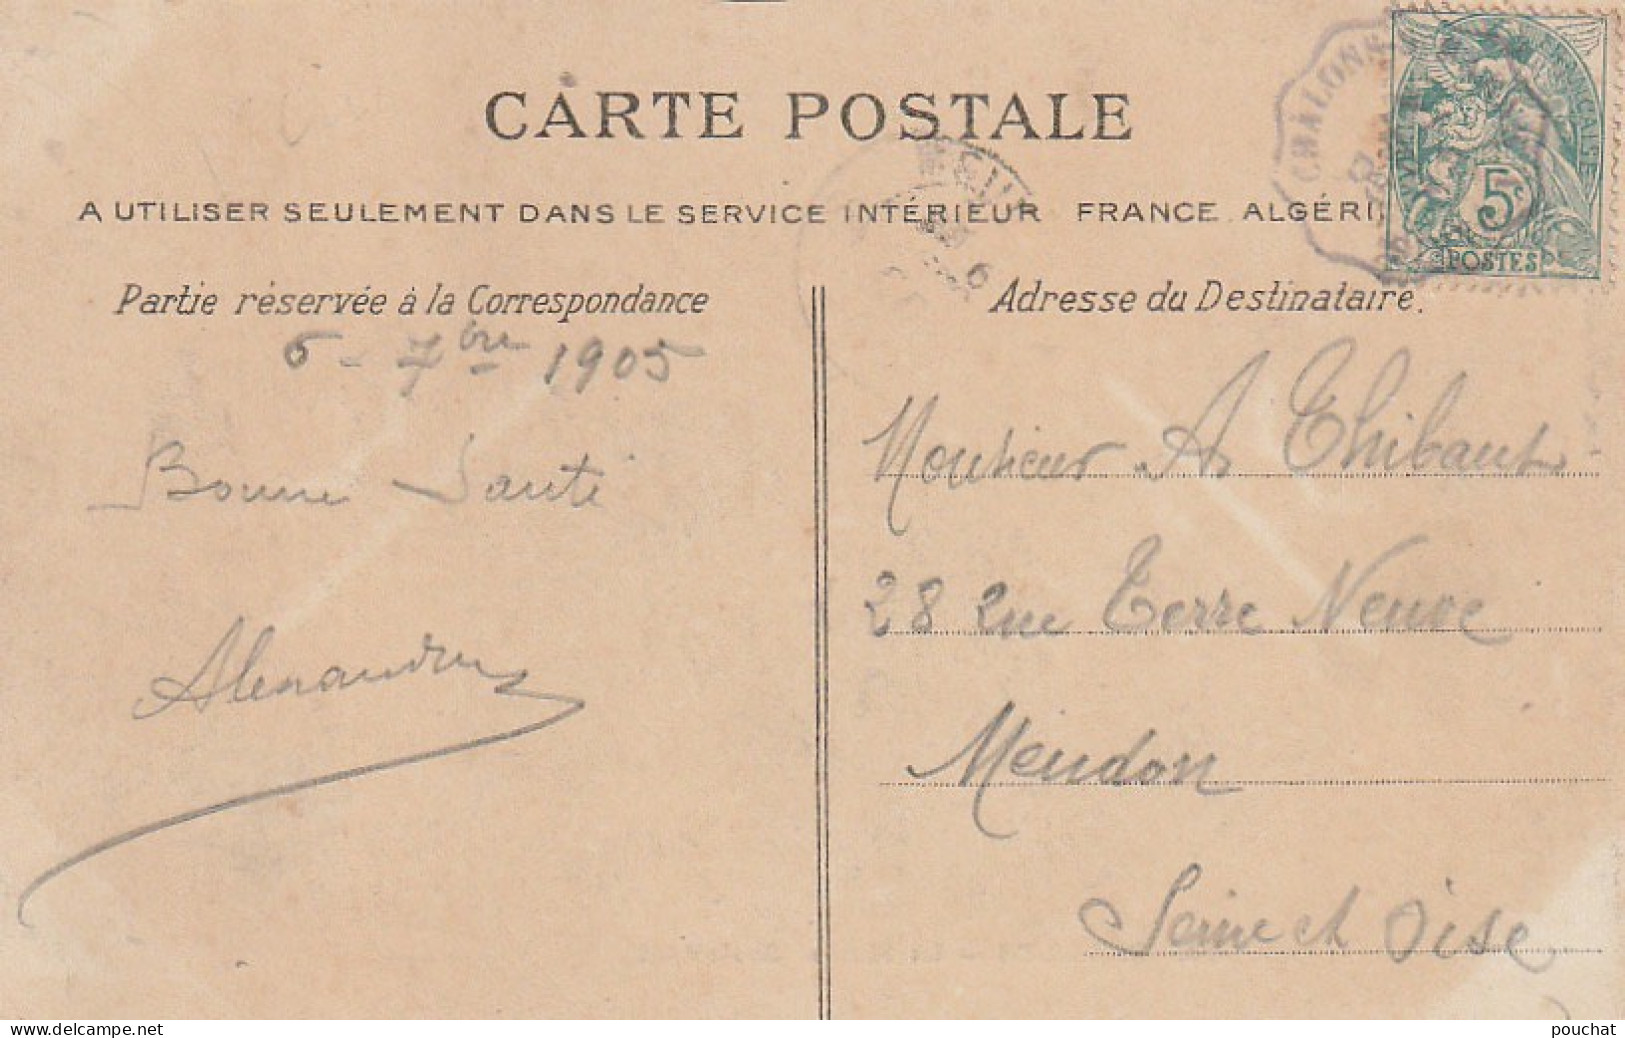 CARTE POSTALE
A UTILISER SEULEMENT DANS LE SERVICE INTÉRIEUR FRANCE ALGÉRI
CHALONN
5c
POSTES
Partie réservée à la Correspondance
6 - 7bre 1905
Bonne Santé
Alexandre
Adresse du Destinataire.
Monsieur A Thibaut
28 rue Terre Neuve
Meudon
Seine et Oise
delcampe.net
pouchat